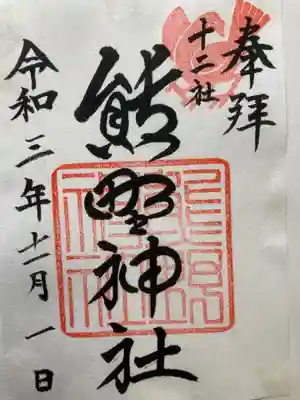 奉拝
十二社
熊野神社
令和三年十一月一日
熊野
神社